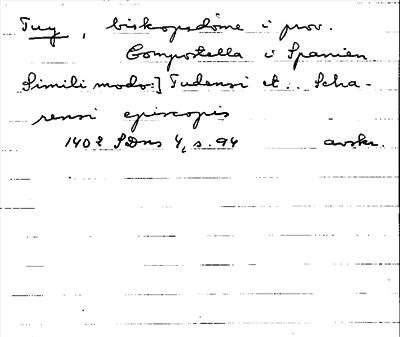 Tuy, biskopsdöme i prov.
Compostella i Spanien
Simili modo:] Tudensi et .. Scha-
rensi episcopis
1402 SDns 4, s. 94 avskr.